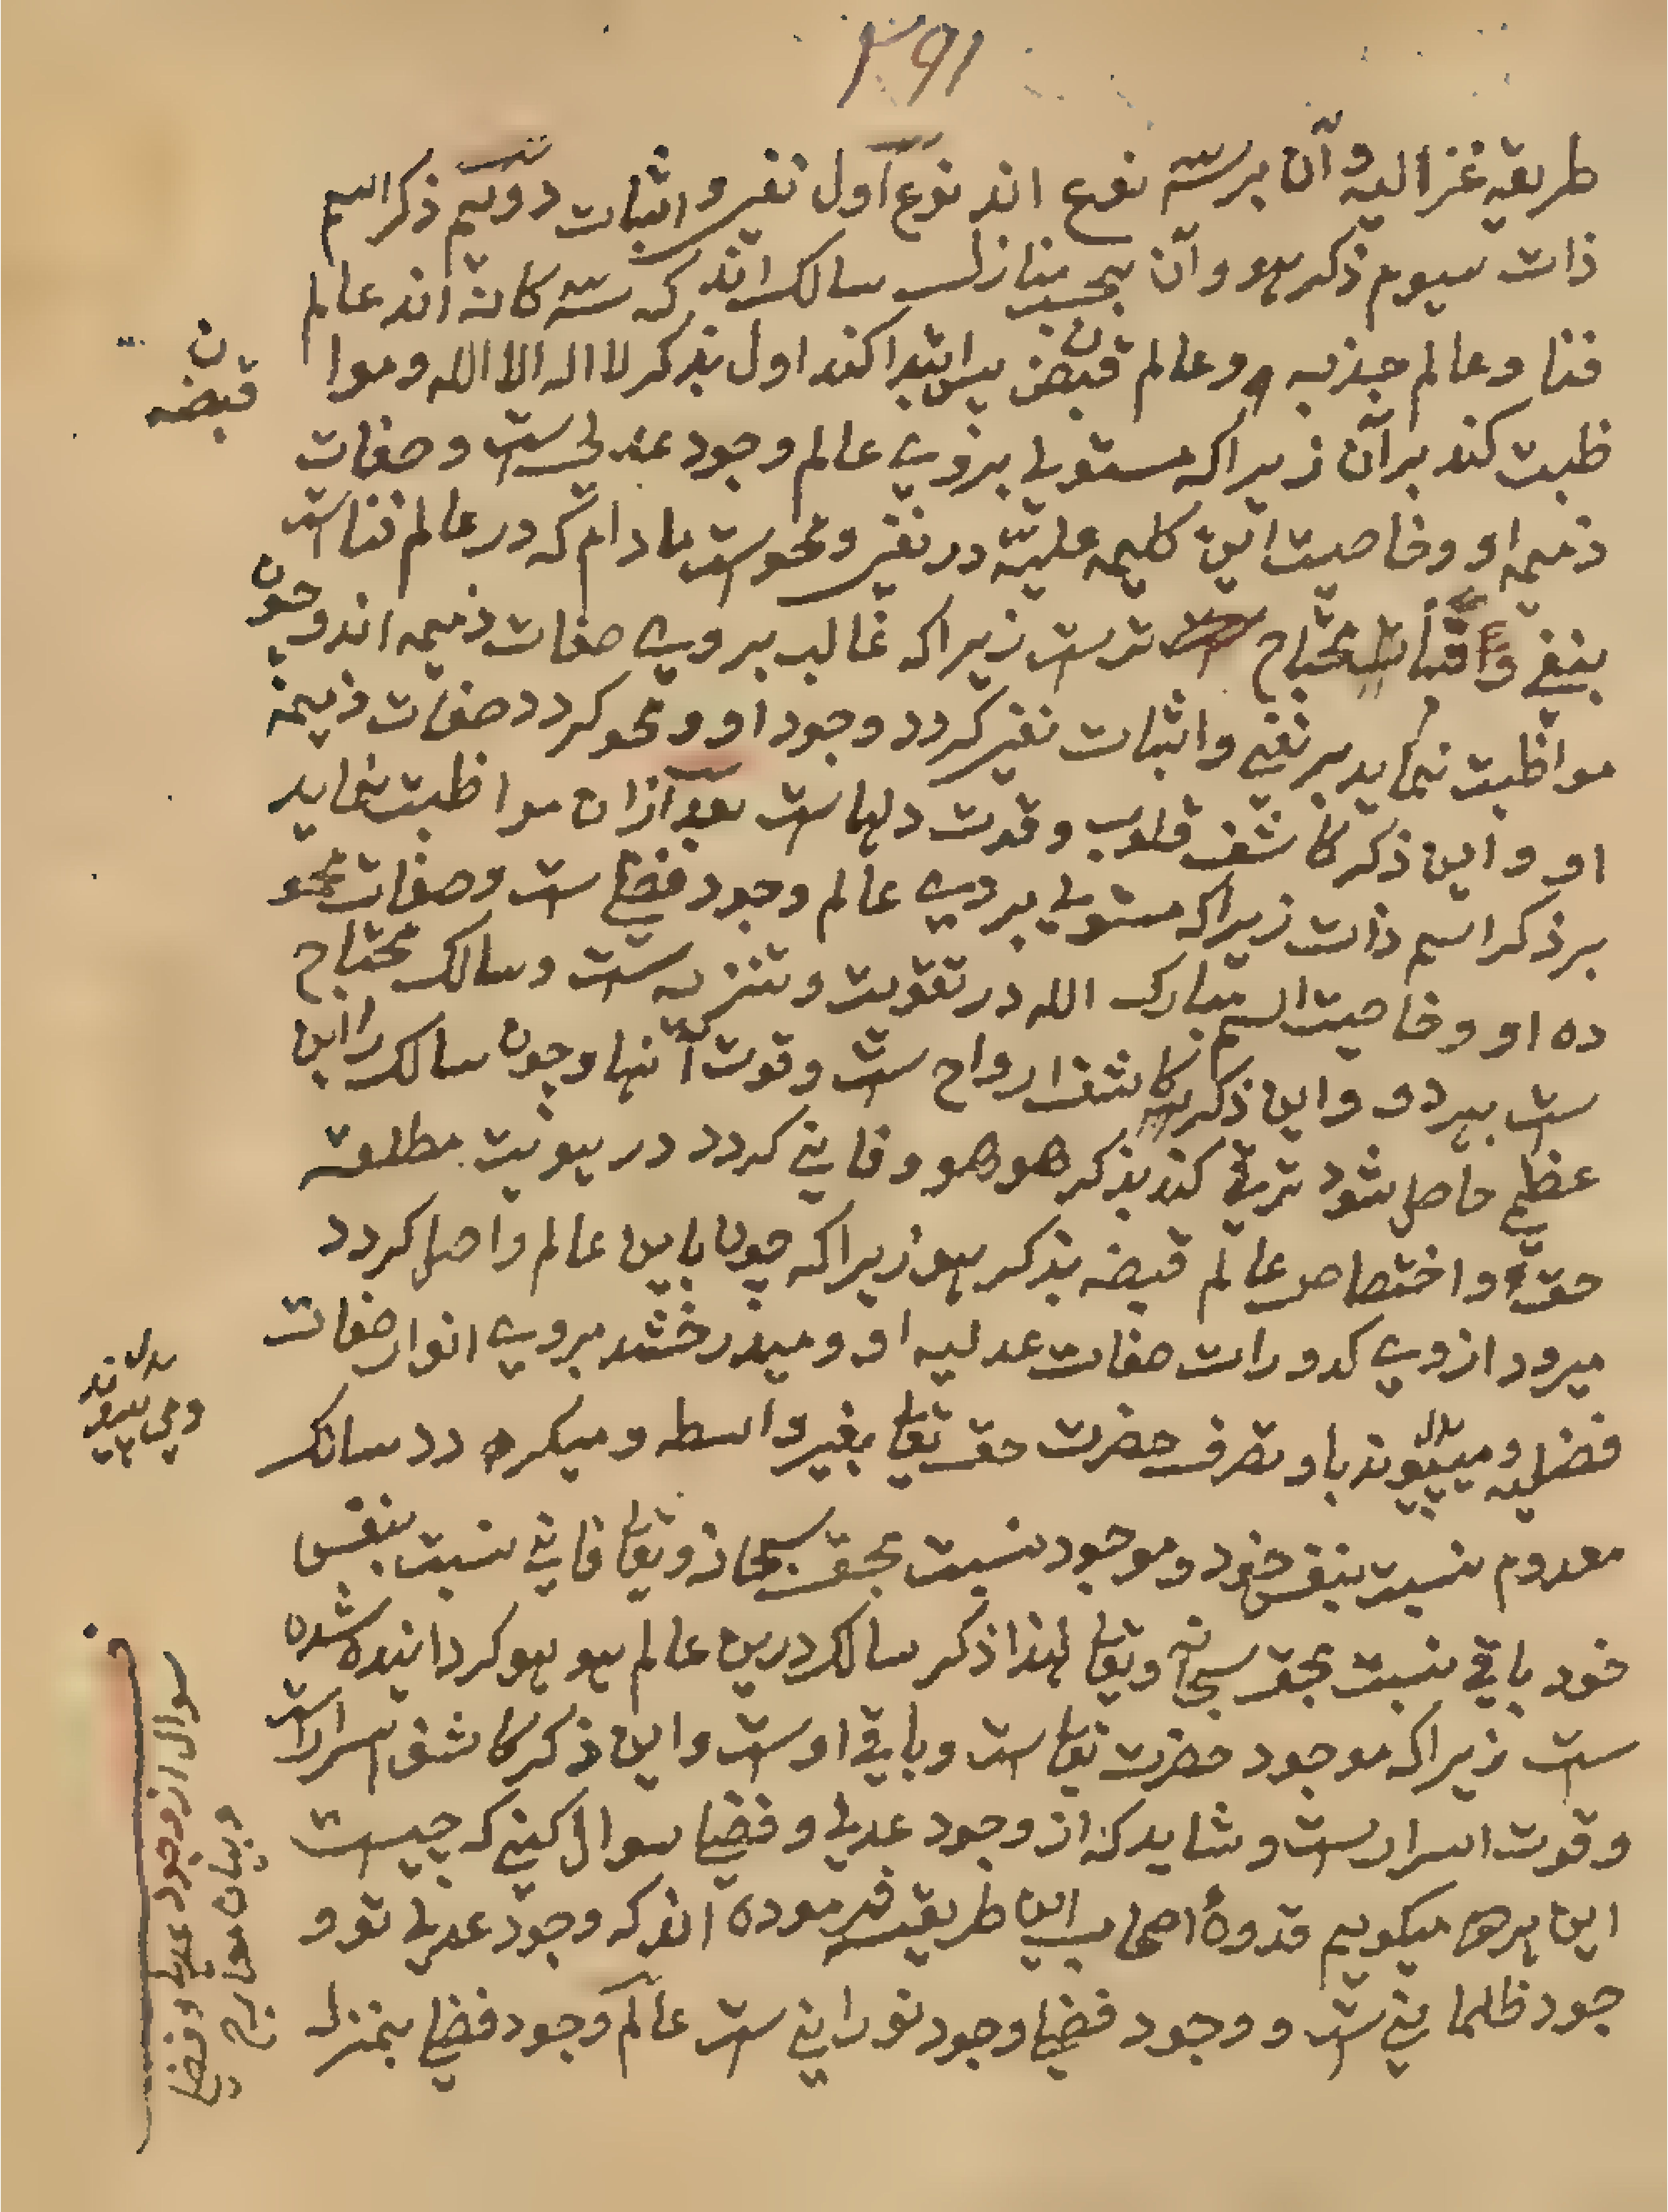 ۳۹۱
طریقه غزالیه و آن بر سه نوع اند نوع اول نفی و اثبات دویم ذکر اسم
ذات سیوم ذکر هو و آن بحسب منازل سالک اند که سه کانه اند عالم
فنا و عالم جذبه و عالم قبض پس ابتدا کند اول بذکر لا اله الا الله و موا
ظبت کند بر آن زیرا که مستولی بر وی عالم وجود عدلی ست و صفات
ذمیمه او و خاصیت این کلیمه علیّه در نفی و محو ست ما دام که در عالم فنا ست
بنفی و اثبات محتاج ترست زیرا که غالب بر وی صفات ذمیمه اند و چون
مواظبت نماید بر نفی و اثبات نفی کردد وجود او و محو کردد صفات ذمیمه
او و این ذکر کاشف قلوب و قوت دلها ست بعد ازان مواظبت نماید
بر ذکر اسم ذات زیرا که مستولی بر وی عالم وجود فضلی ست و صفات محو
ده او و خاصیت اسم مبارک الله در تقویت و تنزیه ست و سالک محتاج
ست بهر دو و این ذکر کاشف ارواح ست و قوت آنها و چون سالک را این
عظمی حاصل شود ترقی کند بذکر هو هو و فانی کردد در هویت مطلقه
حقه و اختصاص عالم قبضه بذکر هو زیرا که چون باین عالم واصل کردد
میرود از وی کدورات صفات عدلیه او و میدرخشد بر وی انوار صفات
فضلیه و میپیوندد باو تصرف حضرت حق تعالی بغیر واسطه و میکردد سالک
معدوم نسبت بنفس خود و موجود نسبت بحق سبحانه و تعالی فانی نسبت بنفس
خود باقی نسبت بحق سبحانه و تعالی لهذا ذکر سالک درین عالم هو هو کردانیده شده
ست زیرا که موجود حضرت تعالی ست و باقی اوست و این ذکر کاشف اسرار ست
و قوت اسرار ست و شاید که از وجود عدلی و فضلی سوال کنی که چیست
این هر دو میکویم قدوهٔ اصحاب این طریقه فرموده اند که وجود عدلی تو و
جود ظلمانی ست و وجود فضلی وجود نورانی ست عالم وجود فضلی بمنزله
ن
قبضه
سوال از وجود عدلی و فضلی
و بیان